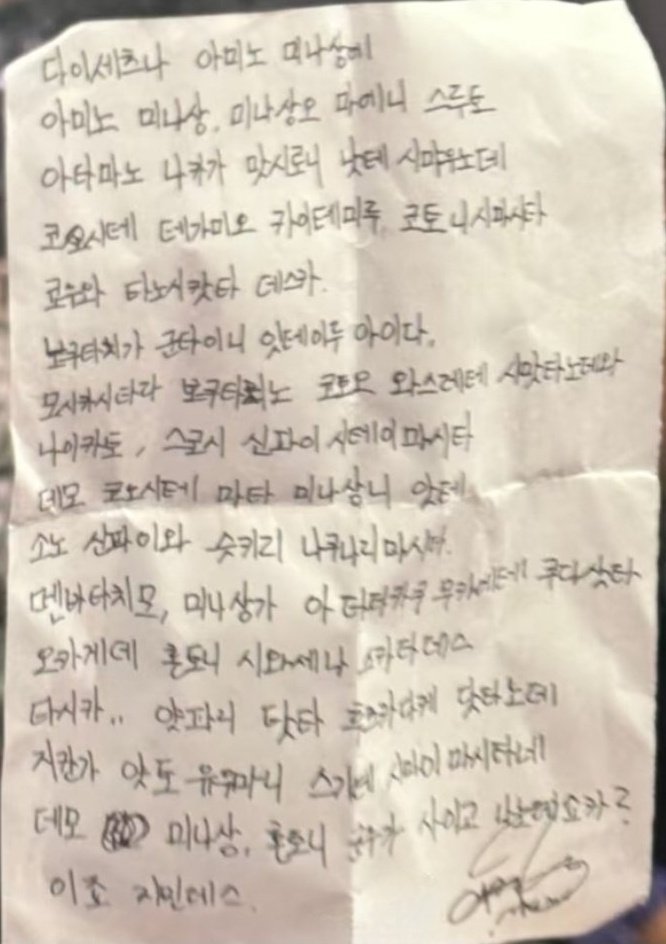 다이세츠나 아미노 미나상에
아미노 미나상, 미나상오 마에니 스루토
아타마노 나카가 맛시로니 낫테 시마우노데
코오시테 테가미오 카이테미루 코토니시마시타
쿄우와 타노시캇타 데스카.
보쿠타치가 군타이니 잇테이루 아이다,
모시카시타라 보쿠타치노 코토오 와스레테 시맛타노데와
나이카토, 스코시 신파이 시테이마시타
데모 코오시테 마타 미나상니 앗테
소노 신파이와 슷키리 나쿠나리마시타.
멘바타치모, 미나상가 아타타카쿠 무카에테 쿠다삿타
오카게데 혼토니 시와세나
타시카.. 얏파리 닷타 닷타노데
지칸가 앗토 유우마니 스기테 시마이마시타네
데모 미나상, 혼토니 사이고
이죠 지민데스.